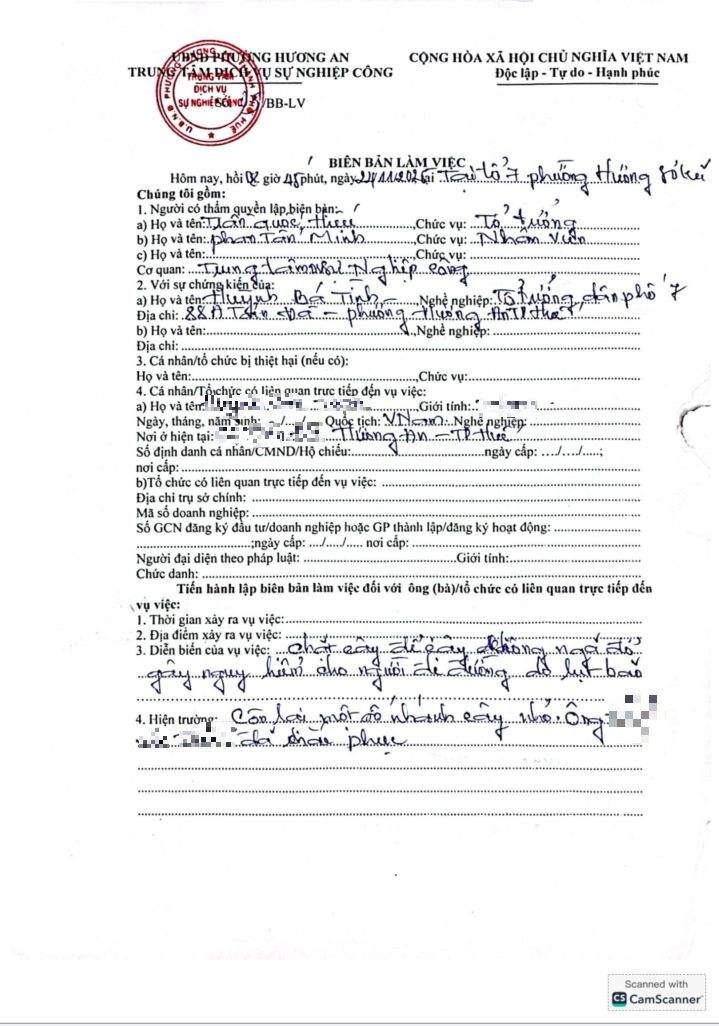 UBND PHƯỜNG HƯƠNG AN
TRUNG TÂM DỊCH VỤ SỰ NGHIỆP CÔNG
CỘNG HÒA XÃ HỘI CHỦ NGHĨA VIỆT NAM
Độc lập - Tự do - Hạnh phúc
TRUNG TÂM
DỊCH VỤ
SỰ NGHIỆP CÔNG
Số /BB-LV
BIÊN BẢN LÀM VIỆC
Hôm nay, hồi 08 giờ 45 phút, ngày tại Tại tổ 7 phường Hương
Chúng tôi gồm:
1. Người có thẩm quyền lập biên bản:
a) Họ và tên: Trần Quốc Hiếu, Chức vụ: Tổ trưởng
b) Họ và tên: Phan Tấn Minh, Chức vụ: Nhân viên
c) Họ và tên:, Chức vụ:
Cơ quan: Trung tâm Nghiệp công
2. Với sự chứng kiến của:
a) Họ và tên: Huỳnh Bá Tịnh Nghề nghiệp: Tổ trưởng dân phố 7
Địa chỉ: 88A Tản Đà - phường Hương An TP Huế
b) Họ và tên:, Nghề nghiệp:
Địa chỉ:
3. Cá nhân/tổ chức bị thiệt hại (nếu có):
Họ và tên:, Chức vụ:
4. Cá nhân/Tổ chức có liên quan trực tiếp đến vụ việc:
a) Họ và tên: Giới tính:
Ngày, tháng, năm sinh: .../.../... Quốc tịch: V Nam Nghề nghiệp:
Nơi ở hiện tại: Hương An - TP Huế
Số định danh cá nhân/CMND/Hộ chiếu: ngày cấp: .../.../.....;
nơi cấp:
b)Tổ chức có liên quan trực tiếp đến vụ việc:
Địa chỉ trụ sở chính:
Mã số doanh nghiệp:
Số GCN đăng ký đầu tư/doanh nghiệp hoặc GP thành lập/đăng ký hoạt động:
;ngày cấp: .../..../..... nơi cấp:
Người đại diện theo pháp luật: Giới tính:
Chức danh:
Tiến hành lập biên bản làm việc đối với ông (bà)/tổ chức có liên quan trực tiếp đến
vụ việc:
1. Thời gian xảy ra vụ việc:
2. Địa điểm xảy ra vụ việc:
3. Diễn biến của vụ việc: chặt cây để cây không ngã đổ
gây nguy hiểm cho người đi đường do lụt bão
4. Hiện trường: Còn lại một số nhánh cây nhỏ. Ông
đã phục
Scanned with
CS CamScanner